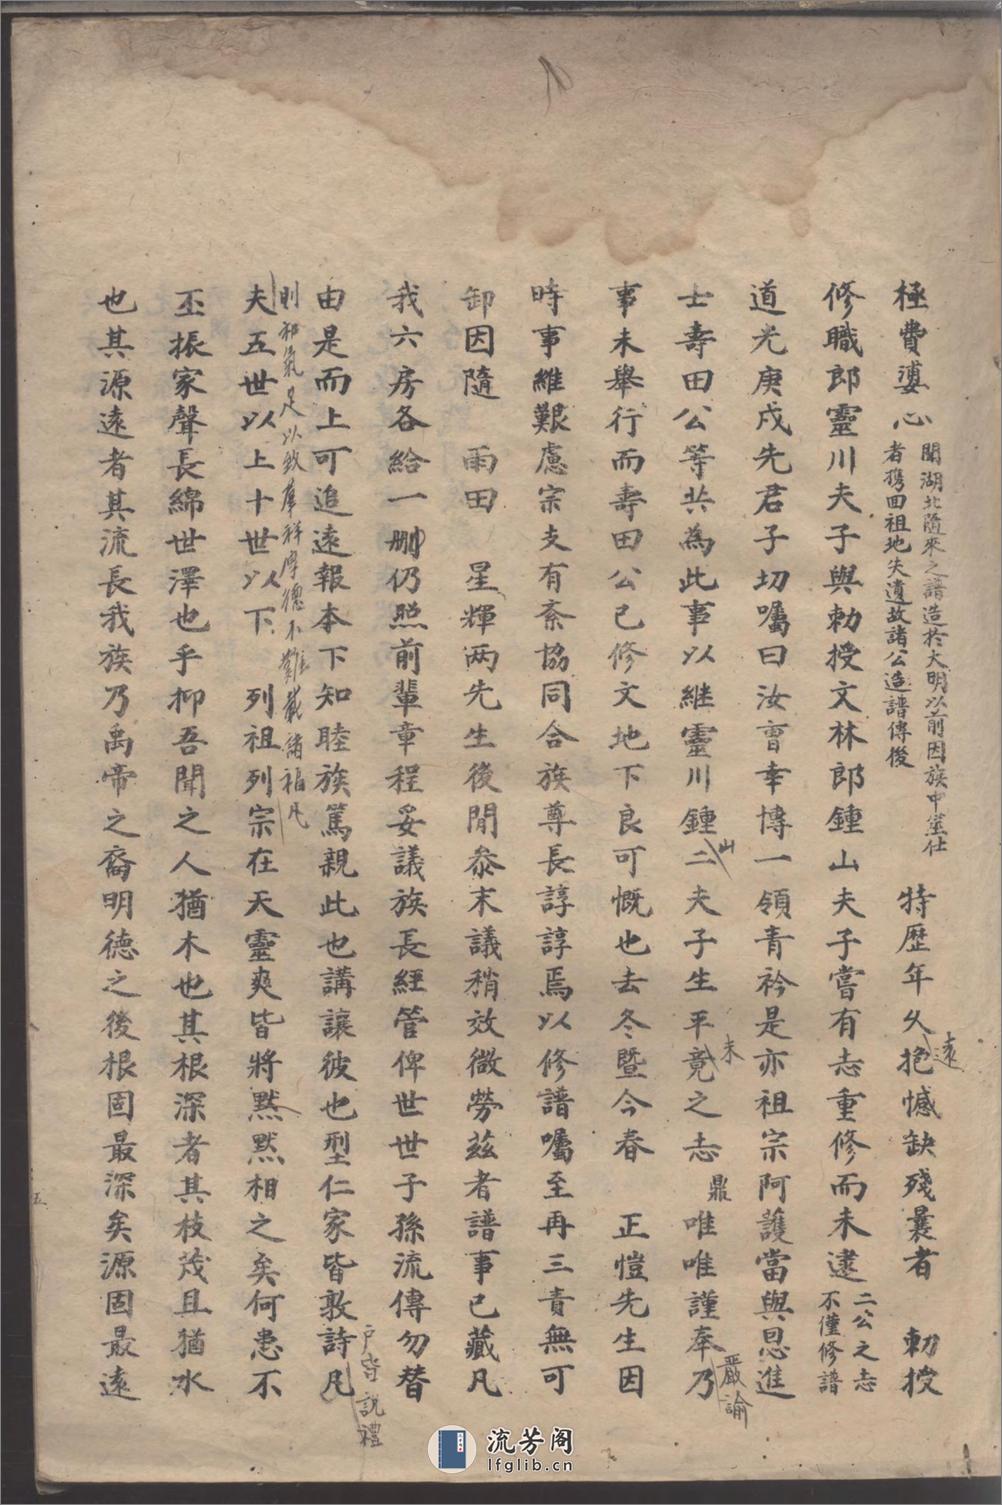 極費婆心
聞湖北隨來之譜造於大明以前因族中宦仕
者携回祖地失遺故諸公造譜傳後
特歷年久抱憾缺殘曩者　勅授
遠
修職郎靈川夫子與勅授文林郎鍾山夫子嘗有志重修而未逮
二公之志
不僅修譜
道光庚戌先君子切囑曰汝曺幸博一領青衿是亦祖宗阿護當與恩進
士壽田公等共為此事以繼靈川鍾二夫子生平竟之志　唯唯謹奉乃
山
未
鼎
嚴諭
事未舉行而壽田公已修文地下良可慨也去冬暨今春　正愷先生因
時事維艱慮宗支有紊協同合族尊長諄諄焉以修譜囑至再三責無可
卸因隨　雨田　星輝两先生後閒叅末議稍效微勞兹者譜事已藏凡
我六房各給一刪仍照前輩章程妥議族長經管俾世世子孫流傳勿替
由是而上可追遠報本下知睦族篤親此也講讓彼也型仁家皆敦詩凡
户皆説禮
則祁氣足以致羣祥厚德不難載諸福凡
夫五世以上十世以下　列祖列宗在天靈爽皆將黙黙相之矣何患不
丕振家聲長綿世澤也乎抑吾聞之人猶木也其根深者其枝茂且猶水
也其源遠者其流長我族乃禹帝之裔明德之後根固最深矣源固最遠
五
流芳阁
lfglib.cn